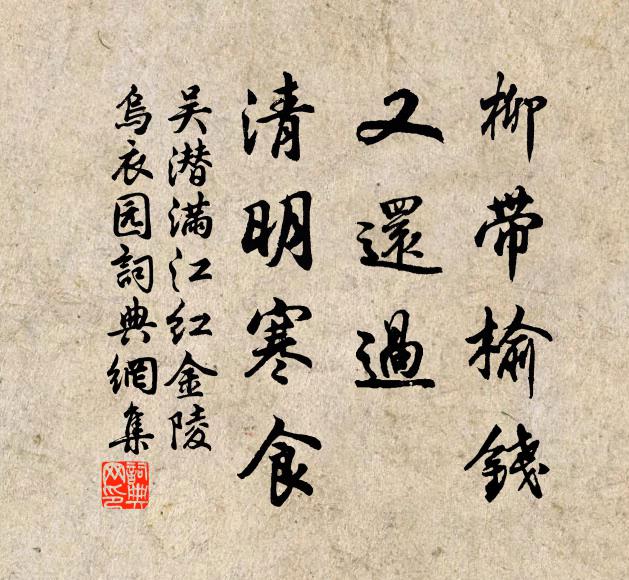 柳帶榆錢
又還過
清明寒食
吴潜满江红金陵
烏衣园詞典網集
詞典网印